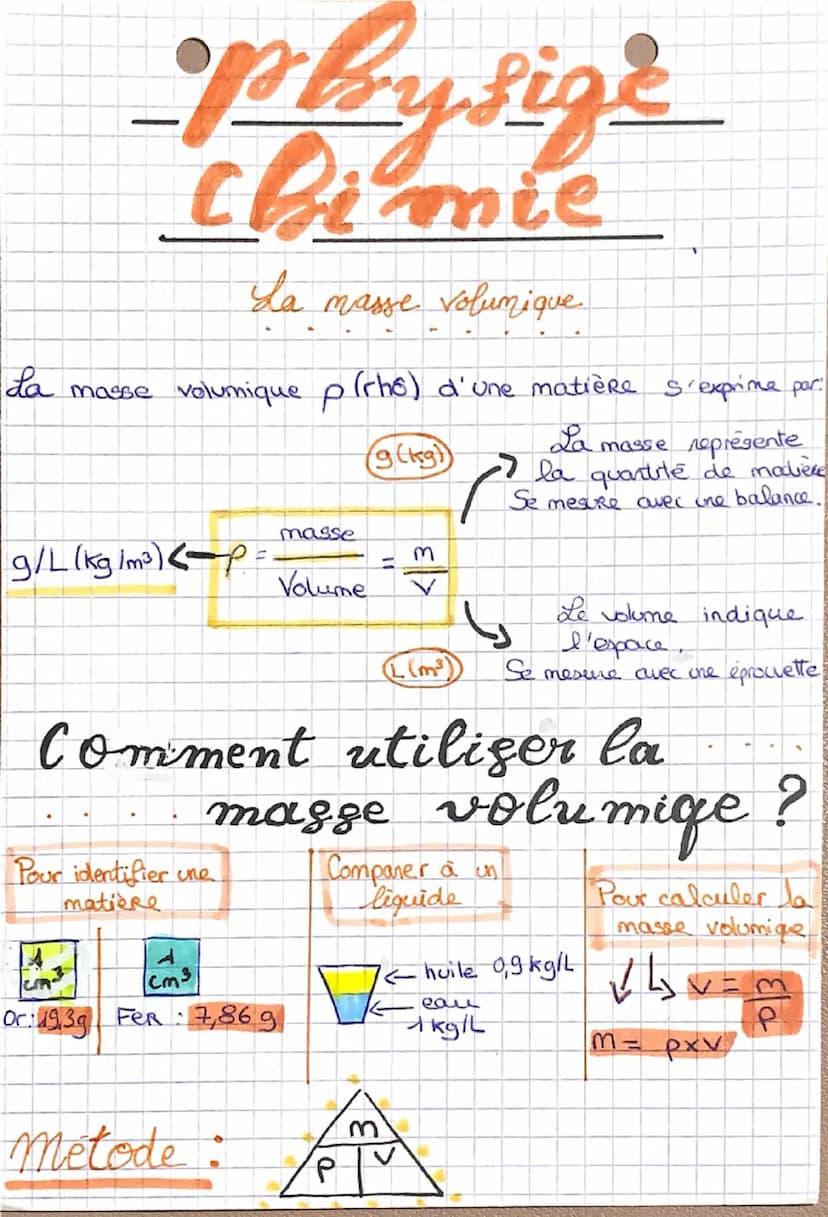 physiqe
chimie
La masse volumique
La masse volumique ρ(rhô) d'une matière s'exprime par:
g(kg)
La masse représente
la quantité de matière
Se mesure avec une balance.
g/L(kg/m³) ← ρ = masse / Volume = m / V
Le volume indique
l'espace.
L(m³)
Se mesure avec une éprouvette
Comment utiliser la
masse volumiqe ?
Pour identifier une
matière
1
cm³
Or: 19,3g
1
cm³
FER : 7,86 g
Comparer à un
liquide
← huile 0,9 kg/L
← eau
1 kg/L
Pour calculer la
masse volumique
v = m / ρ
m = ρxv
Métode :
m
ρ V